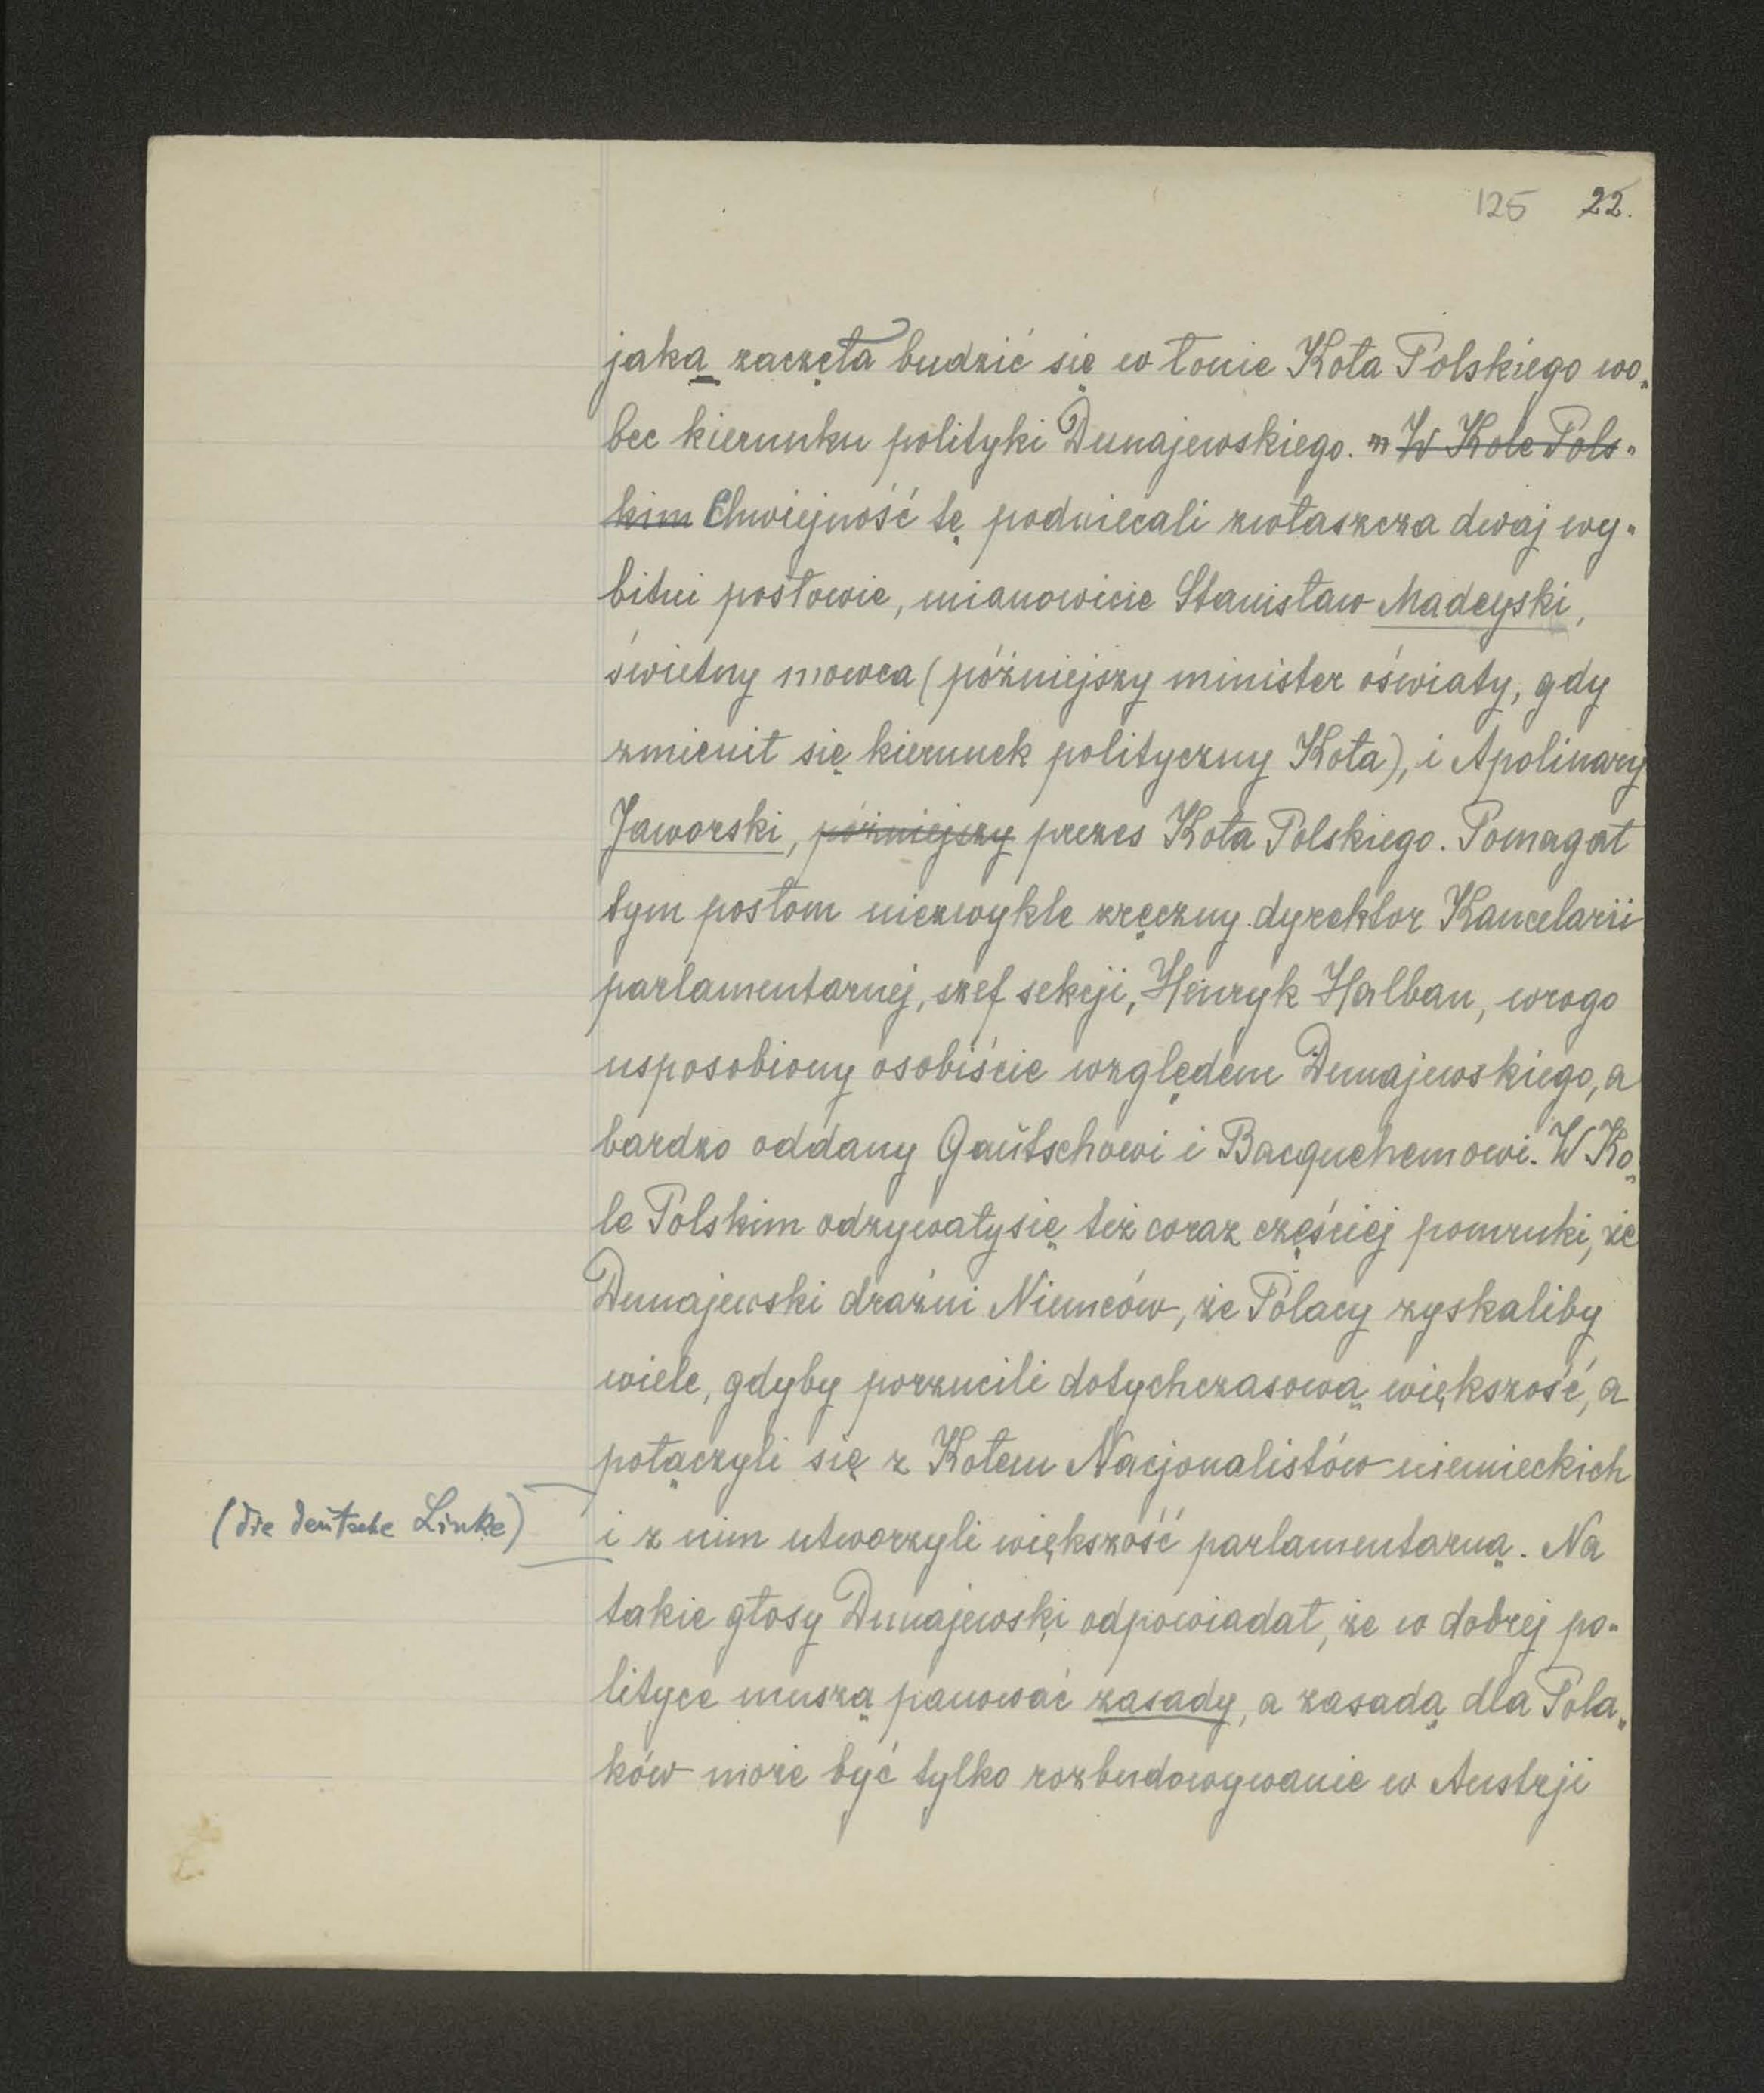 125 22.
jaka zaczęła budzić się w łonie Koła Polskiego wo„
bec kierunku polityki Dunajewskiego. W Kole Pols-
kim Chwiejność tę podniecali zwłaszcza dwaj wy-
bitni posłowie, mianowicie Stanisław Madeyski,
świetny mowca (późniejszy minister oświaty, gdy
zmienił się kierunek polityczny Koła), i Apolinary
Jaworski, późniejszy prezes Koła Polskiego. Pomagał
tym posłom niezwykle zręczny dyrektor Kancelarii
parlamentarnej, szef sekcji, Henryk Halban, wrogo
usposobiony osobiście względem Dunajewskiego, a
bardzo oddany Gautschowi i Bacquehemowi. W Ko„
le Polskim odzywały się też coraz częściej pomruki, że
Dunajewski drażni Niemców, że Polacy zyskaliby
wiele, gdyby porzucili dotychczasową większość, a
połączyli się z Kołem Nacjonalistów niemieckich
(die deutsche Linke)
i z nim utworzyli większość parlamentarną. Na
takie głosy Dunajewski odpowiadał, że w dobrej po-
lityce muszą panować zasady, a zasadą dla Pola„
ków może być tylko rozbudowywanie w Austrji